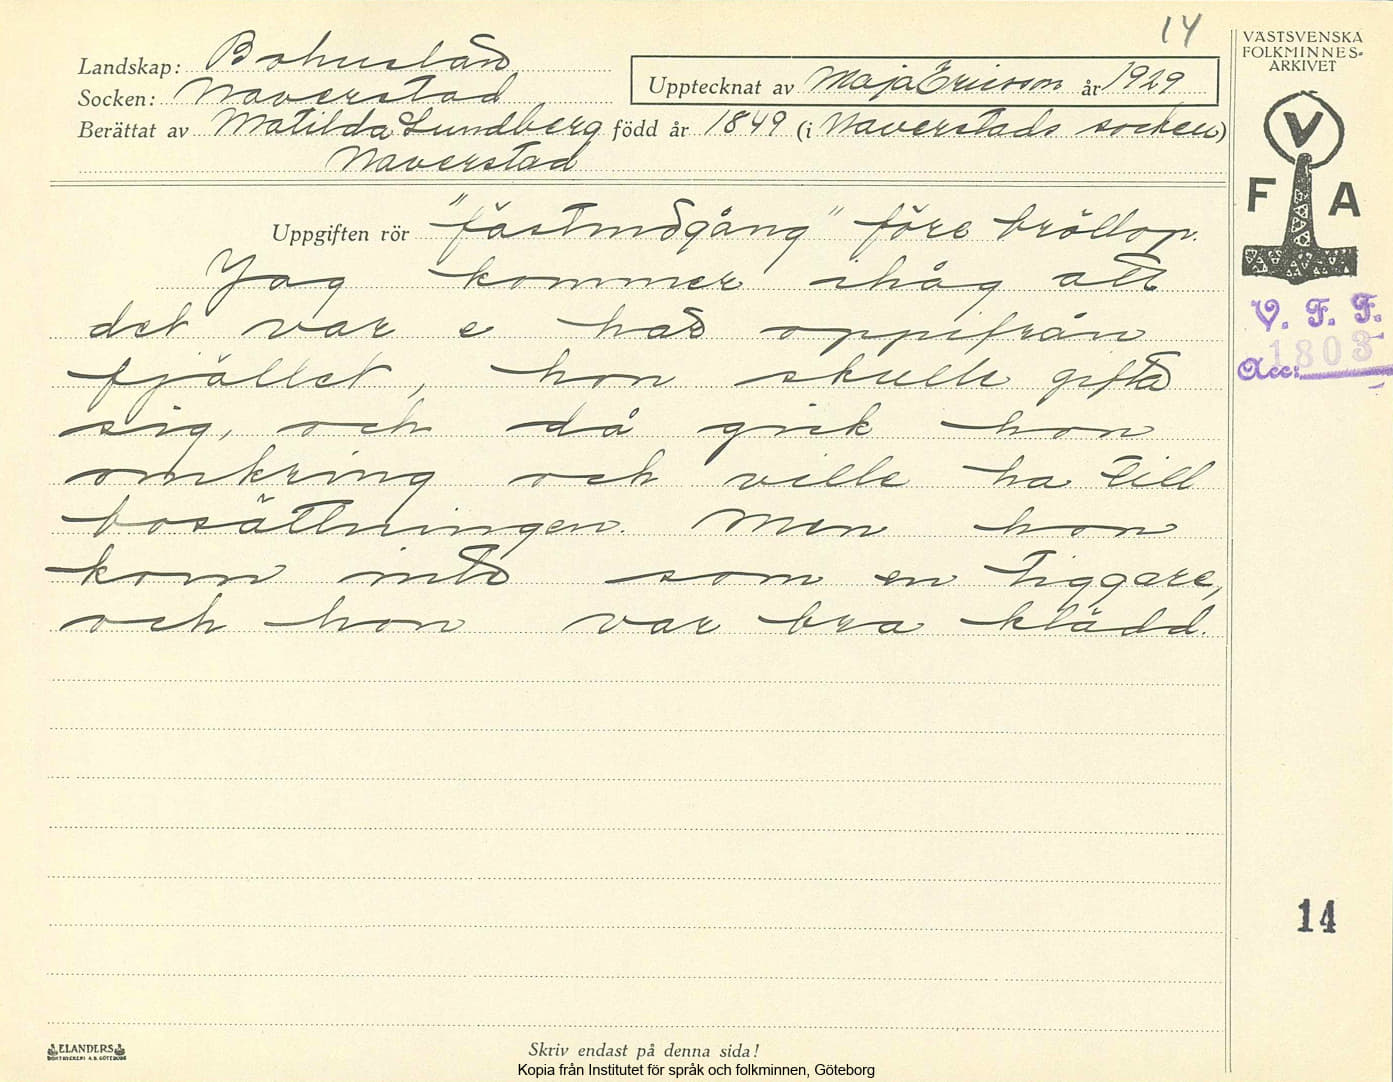 14
VÄSTSVENSKA
FOLKMINNES-
ARKIVET
Landskap: Bohuslän
Socken: Naverstad
Upptecknat av Maja Ericson år 1929
Berättat av Matilda Lundberg född år 1849 (i Naverstads socken)
Naverstad
V
F A
Uppgiften rör "fästmögång" före bröllop.
Jag kommer ihåg att
det var e  oppifrån
fjället, hon skulle gifta
sig, och då gick hon
omkring och ville ha till
bosättningen. Men hon
kom inte som en tiggare,
och hon var bra klädd.
V. F. F.
Acc: 1803
14
ELANDERS
BOKTRYCKERI A.B. GÖTEBORG
Skriv endast på denna sida!
Kopia från Institutet för språk och folkminnen, Göteborg